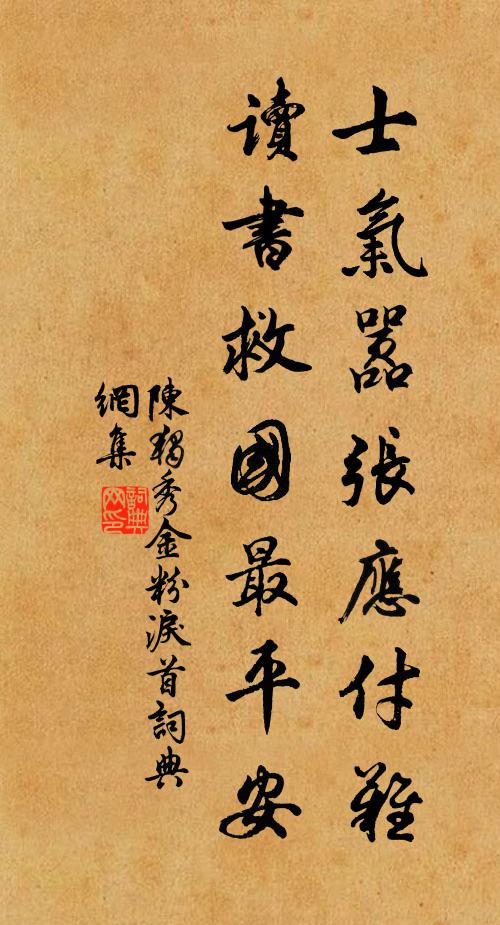 士氣囂張應付難
讀書救國最平安
陳獨秀金粉淚首詞典
網集
詞典
网印